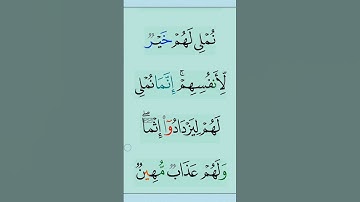 نُمۡلِي لَهُمۡ خَيۡرٞ
لِّأَنفُسِهِمۡۚ إِنَّمَا نُمۡلِي
لَهُمۡ لِيَزۡدَادُوٓاْ إِثۡمٗاۖ
وَلَهُمۡ عَذَابٞ مُّهِينٞ